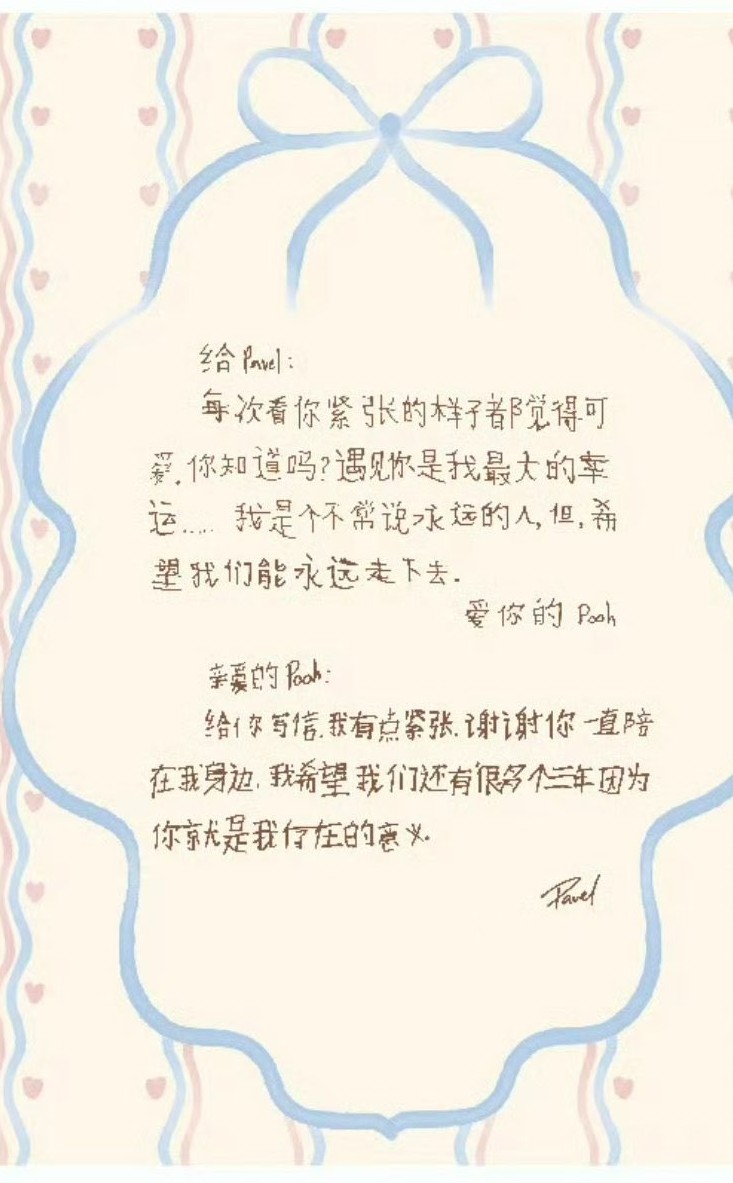 给Pavel:
每次看你紧张的样子都觉得可
爱,你知道吗?遇见你是我最大的幸
运..... 我是个不常说永远的人,但,希
望我们能永远走下去.
爱你的 Pooh
亲爱的Pooh:
给你写信,我有点紧张,谢谢你一直陪
在我身边,我希望我们还有很多个三年因为
你就是我存在的意义.
Pavel